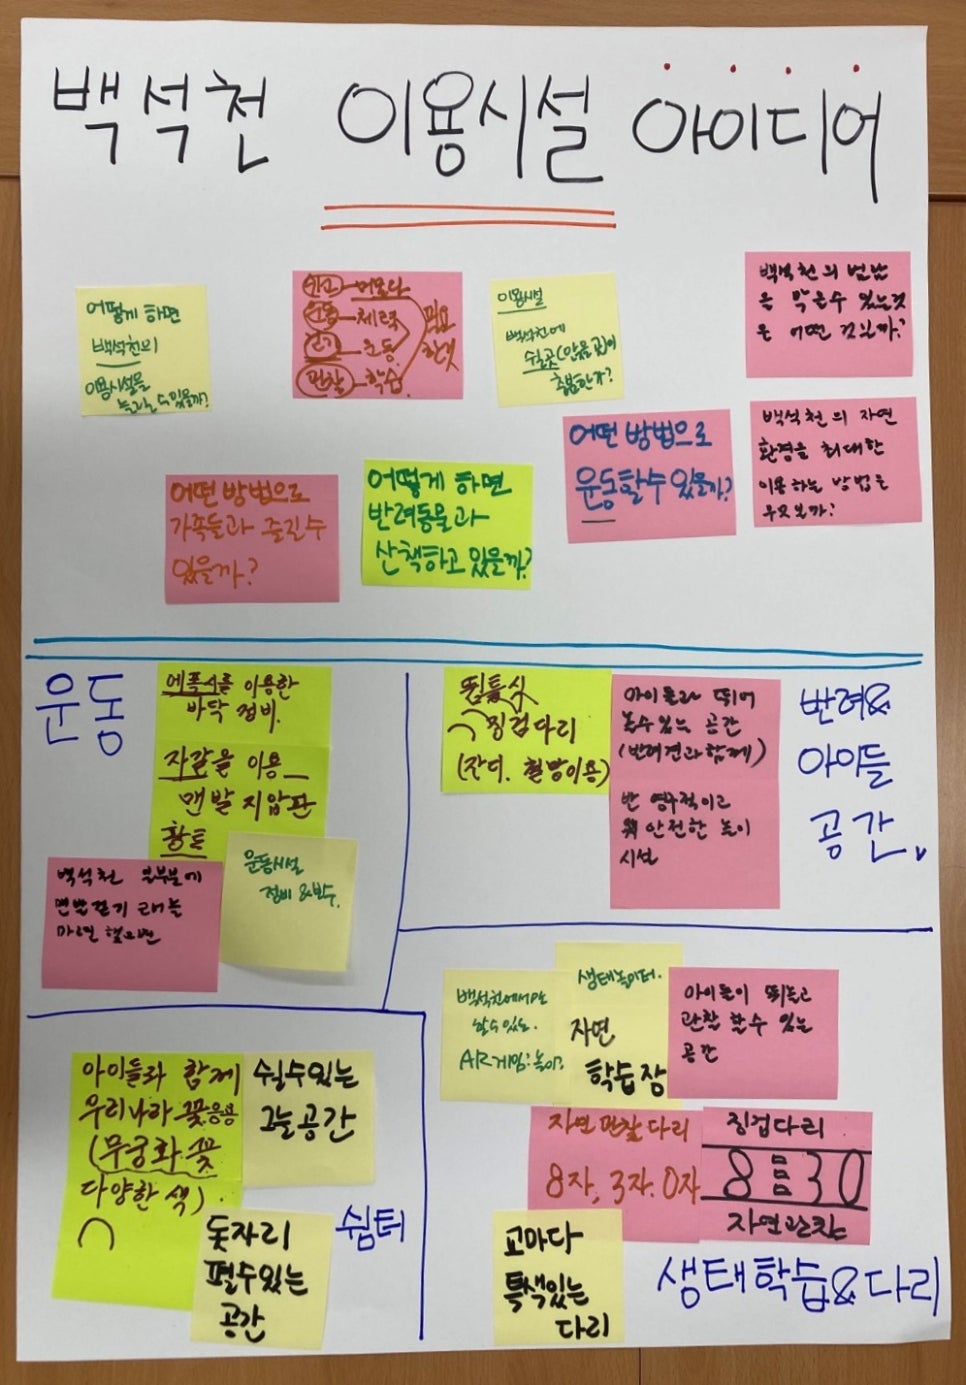 백석천 이용시설 아이디어
어떻게 하면
백석천의
이용시설을
운동
체력
운동
관찰 학습
필요
이용시설
백석천에
쉴곳(앉을곳)이
충분한가?
백석천의 범람
을 막을수 있는것
은 어떤 것일까?
어떤 방법으로
가족들과 즐길수
있을까?
어떻게 하면
반려동물과
산책하고 있을까?
어떤 방법으로
운동할수 있을까?
백석천의 자연
환경을 최대한
이용하는 방법은
무엇일까?
운동
에폭시를 이용한
바닥 정비.
자갈을 이용
맨발 지압판
황토
백석천 일부분에
맨발걷기 코스를
마련 했으면
운동시설
정비 & 보수.
반려&
아이들
공간
징검다리
(잔디. 철망이용)
아이들과 뛰어
놀수있는 공간
(반려견과 함께)
반 영구적이고
안전한 놀이
시설
쉼터
아이들과 함께
우리나라 꽃응용
(무궁화 꽃
다양한 색)
쉴수있는
그늘공간
돗자리
펼수있는
공간
생태학습&다리
백석천에서만
할수있는.
AR게임:놀이?
생태놀이터.
자연
학습장
아이들이 뛰놀고
관찰 할수 있는
공간
자연 관찰 다리
8자, 3자. 0자
징검다리
8 30
자연관찰
교마다
특색있는
다리